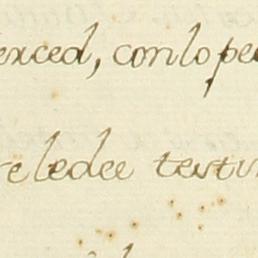 erced, conlope
reledee testu